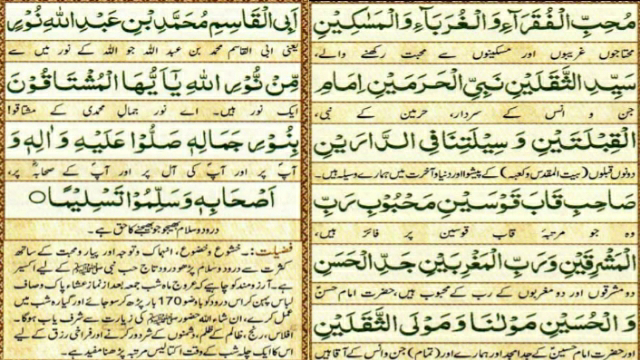 مُحِبِّ الْفُقَرَآءِ وَالْغُرَبَآءِ وَالْمَسٰكِيْنِ
محتاجوں غریبوں اور مسکینوں سے محبت رکھنے والے،
سَيِّدِ الثَّقَلَيْنِ نَبِيِّ الْحَرَمَيْنِ اِمَامِ
جن و انس کے سردار، حرمین کے نبی،
الْقِبْلَتَيْنِ وَسِيْلَتِنَا فِي الدَّارَيْنِ
دونوں قبلوں (بیت المقدس و کعبہ) کے پیشوا اور دنیا و آخرت میں ہمارے وسیلہ ہیں۔
صَاحِبِ قَابَ قَوْسَيْنِ مَحْبُوْبِ رَبِّ
وہ جو مرتبۂ قاب قوسین پر فائز ہیں،
الْمَشْرِقَيْنِ وَرَبِّ الْمَغْرِبَيْنِ جَدِّ الْحَسَنِ
دو مشرقوں اور دو مغربوں کے رب کے محبوب ہیں، حضرت امام حسنؓ
وَالْحُسَيْنِ مَوْلٰنَا وَمَوْلَى الثَّقَلَيْنِ
اور حضرت امام حسینؓ کے جد امجد اور ہمارے اور (تمام) جن و انس کے آقا ہیں
اَبِى الْقَاسِمِ مُحَمَّدِ بْنِ عَبْدِ اللهِ نُوْرٍ
یعنی ابی القاسم محمد بن عبد اللہ جو اللہ کے نور میں سے
مِّنْ نُّوْرِ اللهِ يٰٓاَيُّهَا الْمُشْتَاقُوْنَ
ایک نور ہیں۔ اے نور جمال محمدی کے مشتاقو!
بِنُوْرِ جَمَالِهٖ صَلُّوْا عَلَيْهِ وَاٰلِهٖ وَ
آپؐ پر اور آپؐ کی آل پر اور آپؐ کے صحابہؓ پر،
اَصْحَابِهٖ وَسَلِّمُوْا تَسْلِيْمًا ○
درود و سلام بھیجو جو بھیجنے کا حق ہے۔
فضیلت:۔ خشوع و خضوع، انہماک و توجہ اور پیار و محبت کے ساتھ
کثرت سے درود و سلام پڑھو درود تاج حب نبی ﷺ کے لیے اکسیر
ہے۔ آرزو مند کو چاہیے کہ عروج ماہ شب جمعہ بعد از نماز عشاء، پاک و صاف
لباس پہن کر اس درود کو باوضو 170 بار پڑھ کر سو جائے اور گیارہ شب میں
عمل کرے، ان شاء اللہ حضور ﷺ کی زیارت سے شرف یاب ہوگا۔
افلاس، رنج، ظالم کے ظلم، دشمنوں کے شر دور کرنے اور فراخی رزق کے لیے
اس کا ایک چلہ شب کے وقت اکتالیس مرتبہ پڑھنا مفید ہے۔